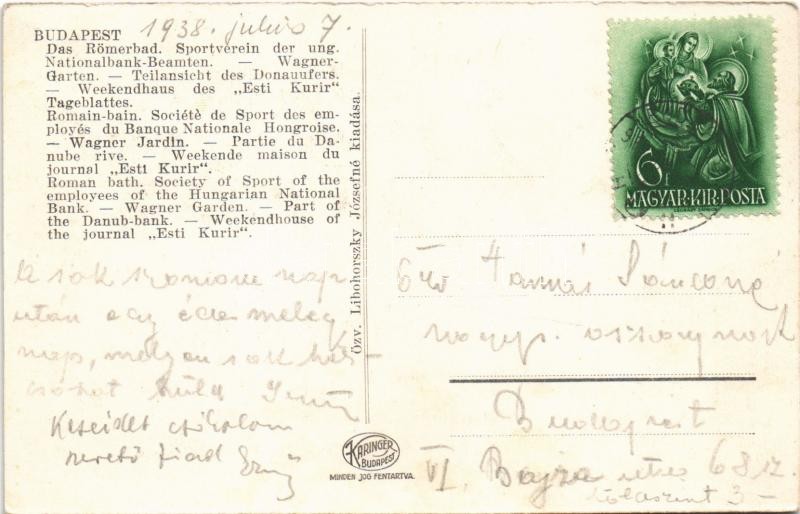 BUDAPEST 1938. julius 7.
Das Römerbad. Sportverein der ung.
Nationalbank-Beamten. — Wagner-
Garten. — Teilansicht des Donauufers.
— Weekendhaus des „Esti Kurir"
Tageblattes.
Romain-bain. Sociétè de Sport des em-
ployés du Banque Nationale Hongroise.
— Wagner Jardin. — Partie du Da-
nube rive. — Weekende maison du
journal „Esti Kurir".
Roman bath. Society of Sport of the
employees of the Hungarian National
Bank. — Wagner Garden. — Part of
the Danub-bank. — Weekendhouse of
the journal „Esti Kurir".
A sok szomorú nap
után egy édes meleg
nap, melyen sok
csókot küld
Kezeidet csókolom
szerető fiad
Özv. Libohorszky Józsefné kiadása.
KARINGER
BUDAPEST
MINDEN JOG FENTARTVA.
6
MAGYAR·KIR·POSTA
nagys. asszonynak
Budapest
VI. Bajza utca 68 sz.
3